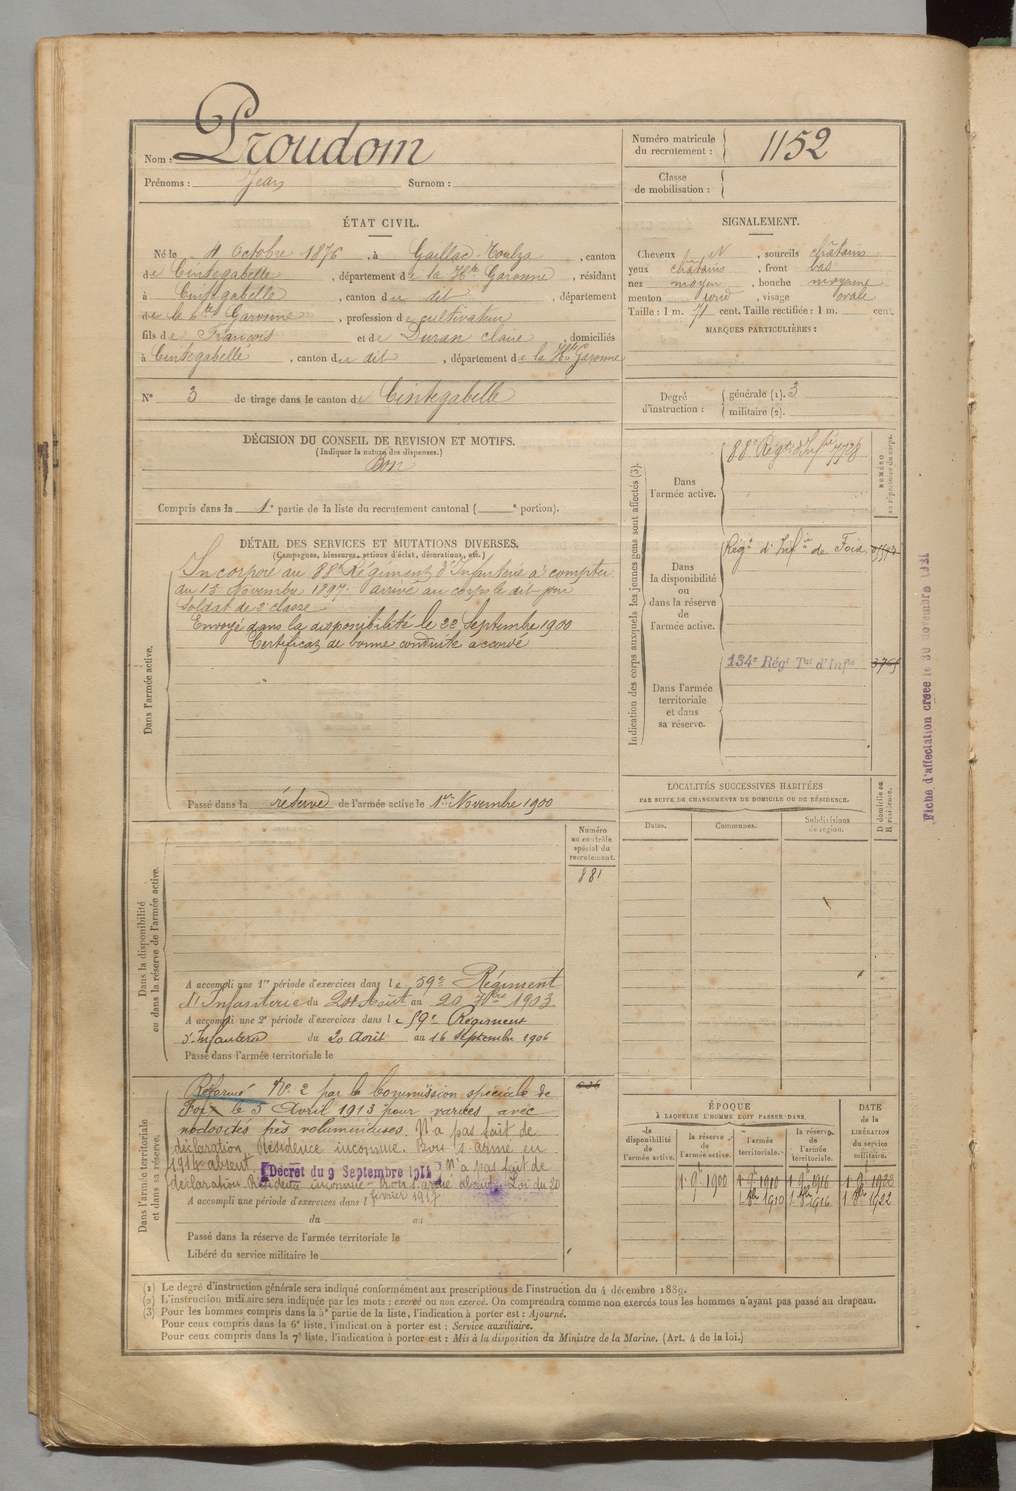 Nom : Proudom
Prénoms : Jean Surnom :
Numéro matricule du recrutement : 1152
Classe de mobilisation :
ÉTAT CIVIL.
Né le 4 Octobre 1876, à Gaillac-Toulza, canton
de Cintegabelle, département de la Hte Garonne, résidant
à Cintegabelle, canton du dit, département
de la Hte Garonne, profession de cultivateur
fils de François et de Duran Claire, domiciliés
à Cintegabelle, canton du dit, département de la Hte Garonne
N° 3 de tirage dans le canton de Cintegabelle
SIGNALEMENT.
Cheveux N, sourcils châtains
yeux châtains, front bas
nez moyen, bouche moyenne
menton rond, visage ovale
Taille : 1 m. 71 cent. Taille rectifiée : 1 m. cent.
MARQUES PARTICULIÈRES :
Degré d'instruction : générale (1). 3
militaire (2).
DÉCISION DU CONSEIL DE REVISION ET MOTIFS.
(Indiquer la nature des dispenses.)
Bon
Compris dans la 1e partie de la liste du recrutement cantonal ( e portion).
DÉTAIL DES SERVICES ET MUTATIONS DIVERSES.
(Campagnes, blessures, actions d'éclat, décorations, etc.)
Dans l'armée active.
Incorporé au 88e Régiment d'Infanterie à compter
du 15 Novembre 1897. arrivé au corps le dit jour
Soldat de 2e classe
Envoyé dans la disponibilité le 22 Septembre 1900
Certificat de bonne conduite accordé
Passé dans la réserve de l'armée active le 1er Novembre 1900
Indication des corps auxquels les jeunes gens sont affectés (3).
NUMÉRO au répertoire du corps.
Dans l'armée active.
88e Régt d'Infie 7728
Dans la disponibilité ou dans la réserve de l'armée active.
Régt d'Infie de Foix
Dans l'armée territoriale et dans sa réserve.
134e Régt Tal d'Infie
Fiche d'affectation créée le 30 novembre 1921
LOCALITÉS SUCCESSIVES HABITÉES
PAR SUITE DE CHANGEMENTS DE DOMICILE OU DE RÉSIDENCE.
Dates. Communes. Subdivisions de région. D domicile ou R résidence.
Dans la disponibilité ou dans la réserve de l'armée active.
Numéro au contrôle spécial du recrutement.
881
A accompli une 1re période d'exercices dans le 59e Régiment
d'Infanterie du 24 Août au 20 7bre 1903
A accompli une 2e période d'exercices dans le 59e Régiment
d'Infanterie du 20 Août au 16 Septembre 1906
Passé dans l'armée territoriale le
Dans l'armée territoriale et dans sa réserve.
Réformé N° 2 par la Commission spéciale de
Foix le 5 Avril 1913 pour varices avec
nodosités très volumineuses. N'a pas fait de
déclaration Résidence inconnue. Bon s. armé en
1914 absent [Décret du 9 Septembre 1914] N'a pas fait de
déclaration Résidence inconnue absent. Loi du 20
février 1917
A accompli une période d'exercices dans l
du au
Passé dans la réserve de l'armée territoriale le
Libéré du service militaire le
ÉPOQUE
À LAQUELLE L'HOMME DOIT PASSER DANS
la disponibilité de l'armée active. la réserve de l'armée active. l'armée territoriale. la réserve de l'armée territoriale. DATE de la LIBÉRATION du service militaire.
1. 9e 1900 1. 9e 1910 1. 9e 1916 1. 9e 1922
1. 8bre 1910 1. 8bre 1916 1. 8bre 1922
(1) Le degré d'instruction générale sera indiqué conformément aux prescriptions de l'instruction du 4 décembre 1889.
(2) L'instruction militaire sera indiquée par les mots : exercé ou non exercé. On comprendra comme non exercés tous les hommes n'ayant pas passé au drapeau.
(3) Pour les hommes compris dans la 5e partie de la liste, l'indication à porter est : Ajourné.
Pour ceux compris dans la 6e liste, l'indication à porter est : Service auxiliaire.
Pour ceux compris dans la 7e liste, l'indication à porter est : Mis à la disposition du Ministre de la Marine. (Art. 4 de la loi.)